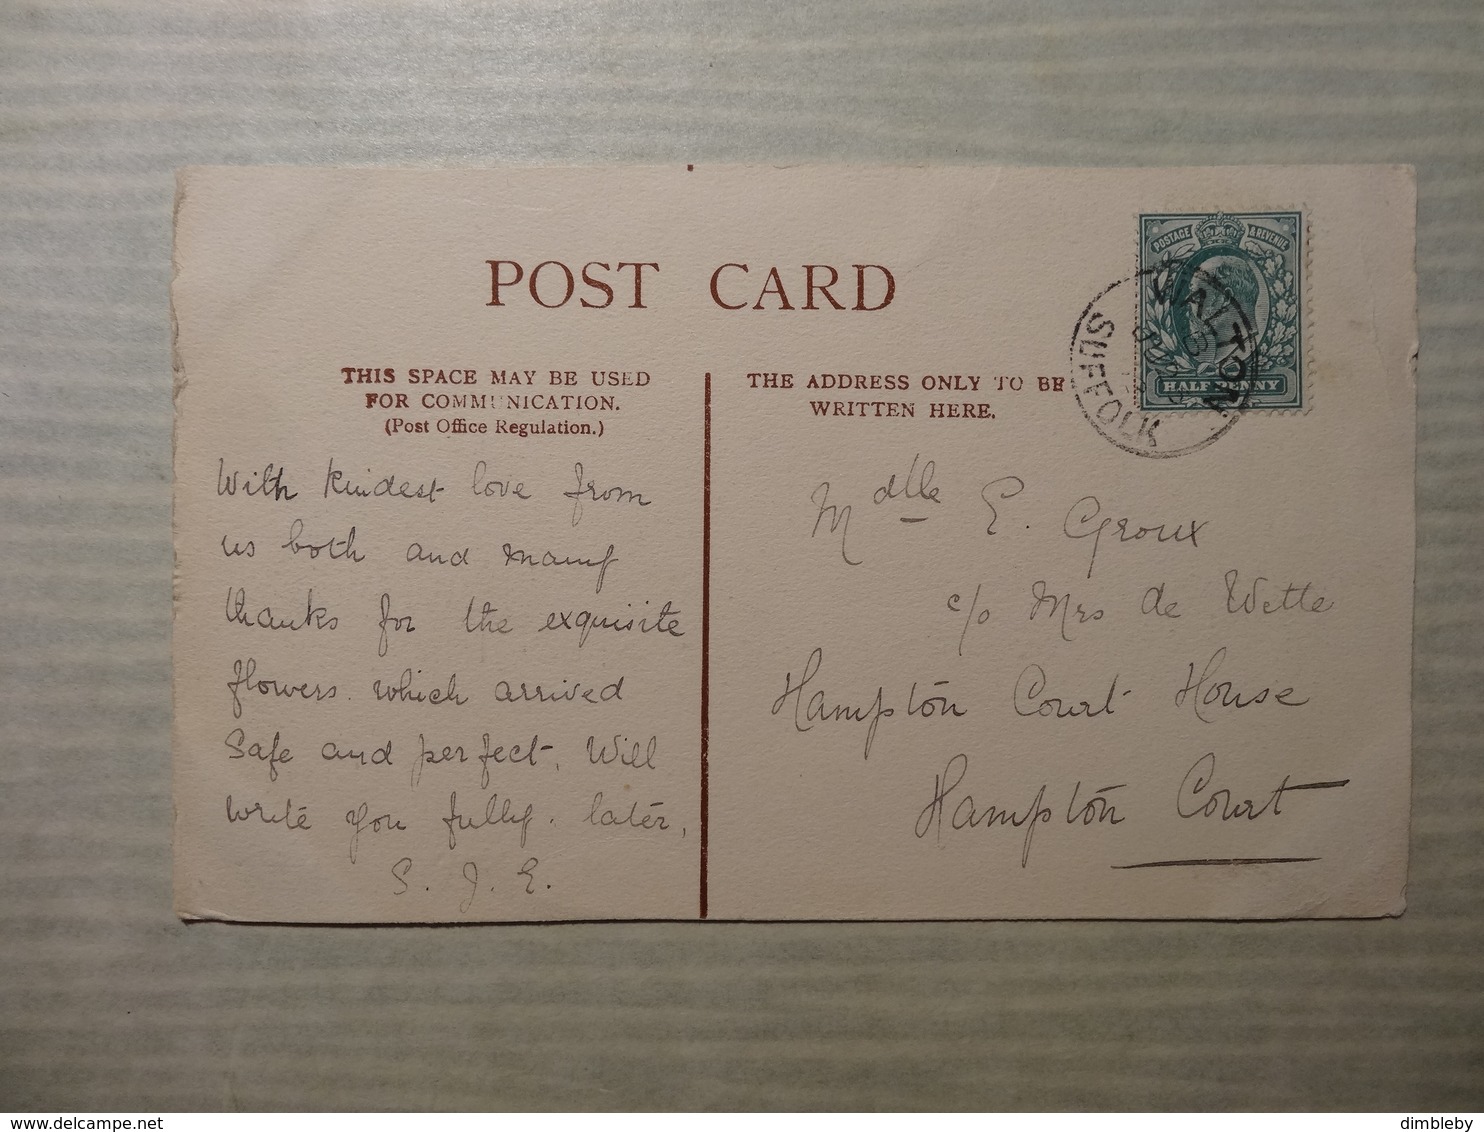 POST CARD
THIS SPACE MAY BE USED
FOR COMMUNICATION.
(Post Office Regulation.)
THE ADDRESS ONLY TO BE
WRITTEN HERE.
POSTAGE & REVENUE
HALF PENNY
WALTON
SUFFOLK
With kindest love from
us both and many
thanks for the exquisite
flowers which arrived
safe and perfect. Will
write you fully. later,
S. J. E.
Mdlle E. Groux
c/o Mrs de Wette
Hampton Court House
Hampton Court
delcampe.net
dimbleby